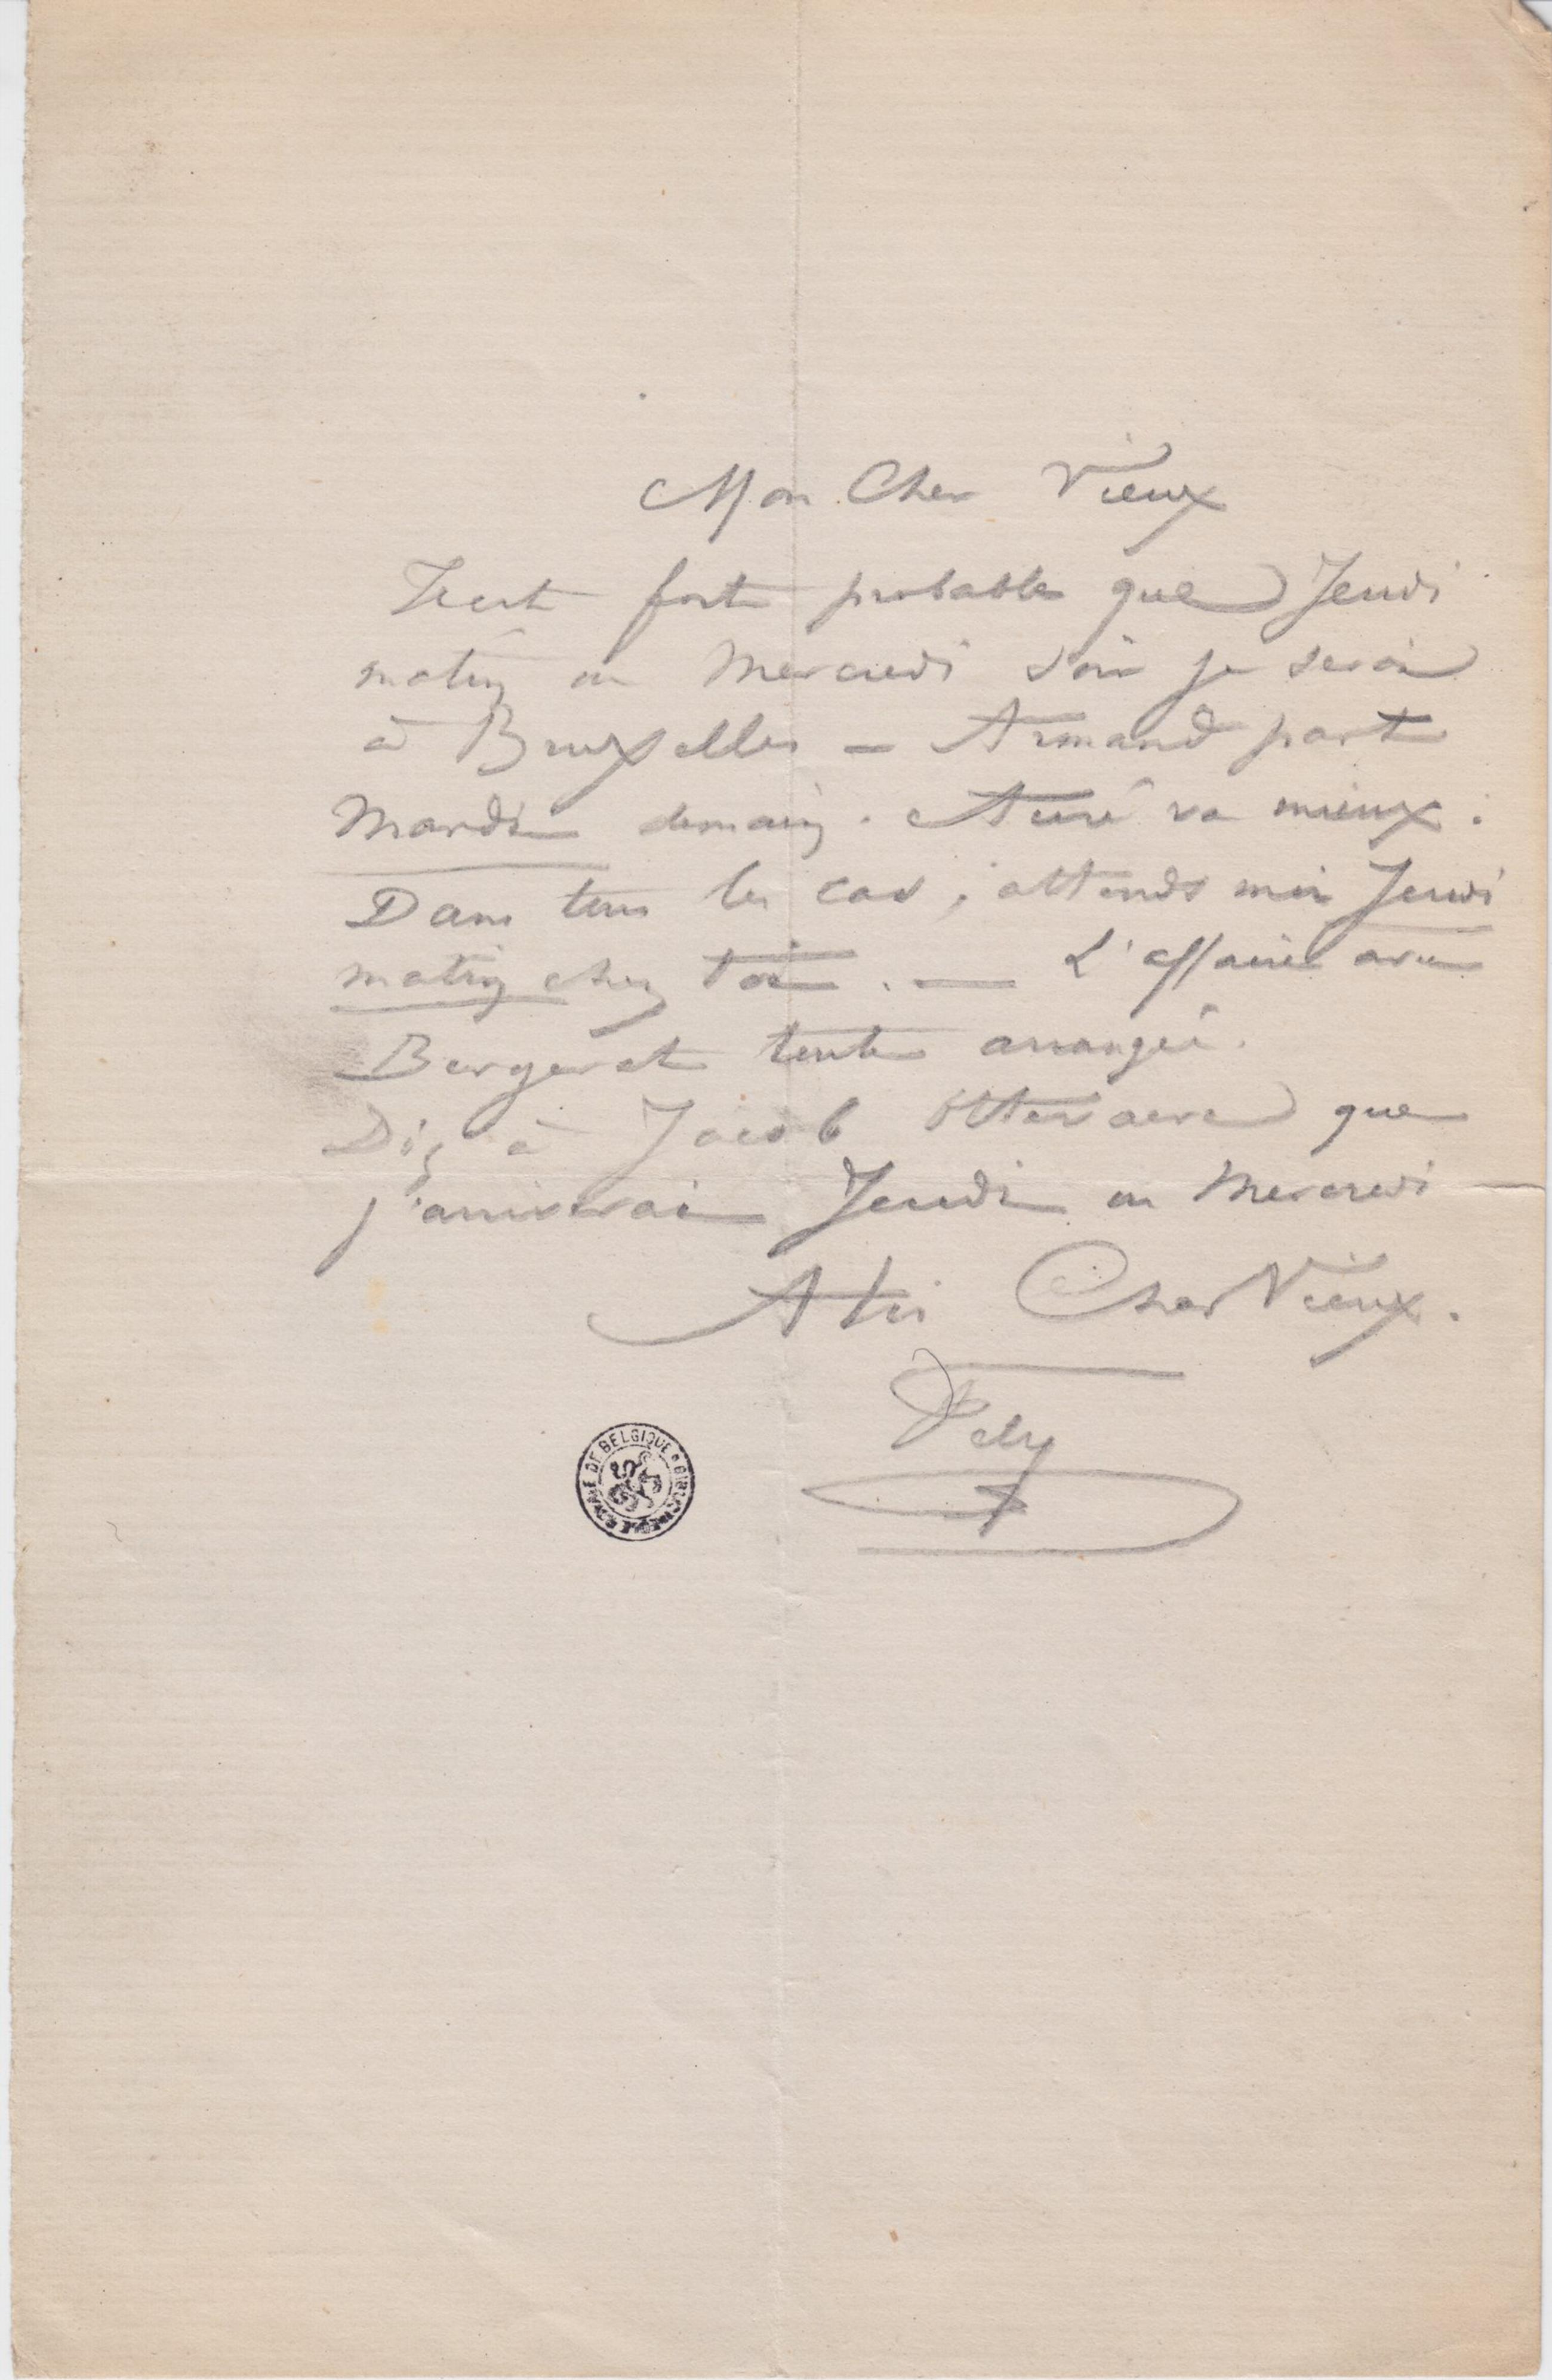 Mon Cher Vieux
Il est fort probable que Jeudi
matin ou Mercredi soir je serai
à Bruxelles – Armand part
Mardi demain. va mieux.
Dans tous les cas, attends moi Jeudi
matin chez toi. — L'affaire avec
Bergerat toute arrangée.
Dis à Jacob Ottevaere que
j'arriverai Jeudi ou Mercredi
A toi Cher Vieux.
Fély
BIBLIOTHÈQUE ROYALE DE BELGIQUE